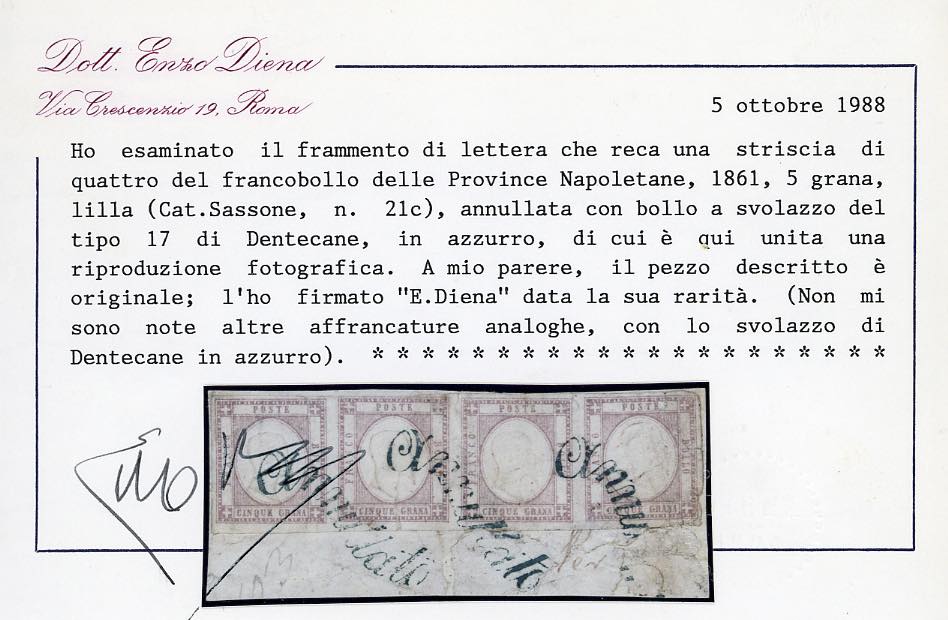 Dott. Enzo Diena
Via Crescenzio 19, Roma
5 ottobre 1988
Ho esaminato il frammento di lettera che reca una striscia di
quattro del francobollo delle Province Napoletane, 1861, 5 grana,
lilla (Cat.Sassone, n. 21c), annullata con bollo a svolazzo del
tipo 17 di Dentecane, in azzurro, di cui è qui unita una
riproduzione fotografica. A mio parere, il pezzo descritto è
originale; l'ho firmato "E.Diena" data la sua rarità. (Non mi
sono note altre affrancature analoghe, con lo svolazzo di
Dentecane in azzurro). * * * * * * * * * * * * * * * * * * * * *
POSTE POSTE POSTE POSTE
FRANCO BOLLO FRANCO BOLLO
Annullato Annullato Annul
CINQUE GRANA CINQUE GRANA CINQUE GRANA CINQUE GRANA